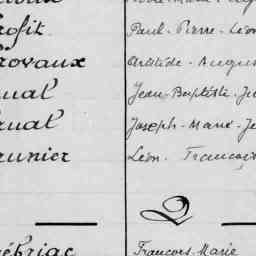 rofit Paul-Pierre-Léon
rovaux Aristide-August
nual Jean-Baptiste-Ju
nual Joseph-Marie-Je
runier Léon-François
Q
ébriac François-Marie